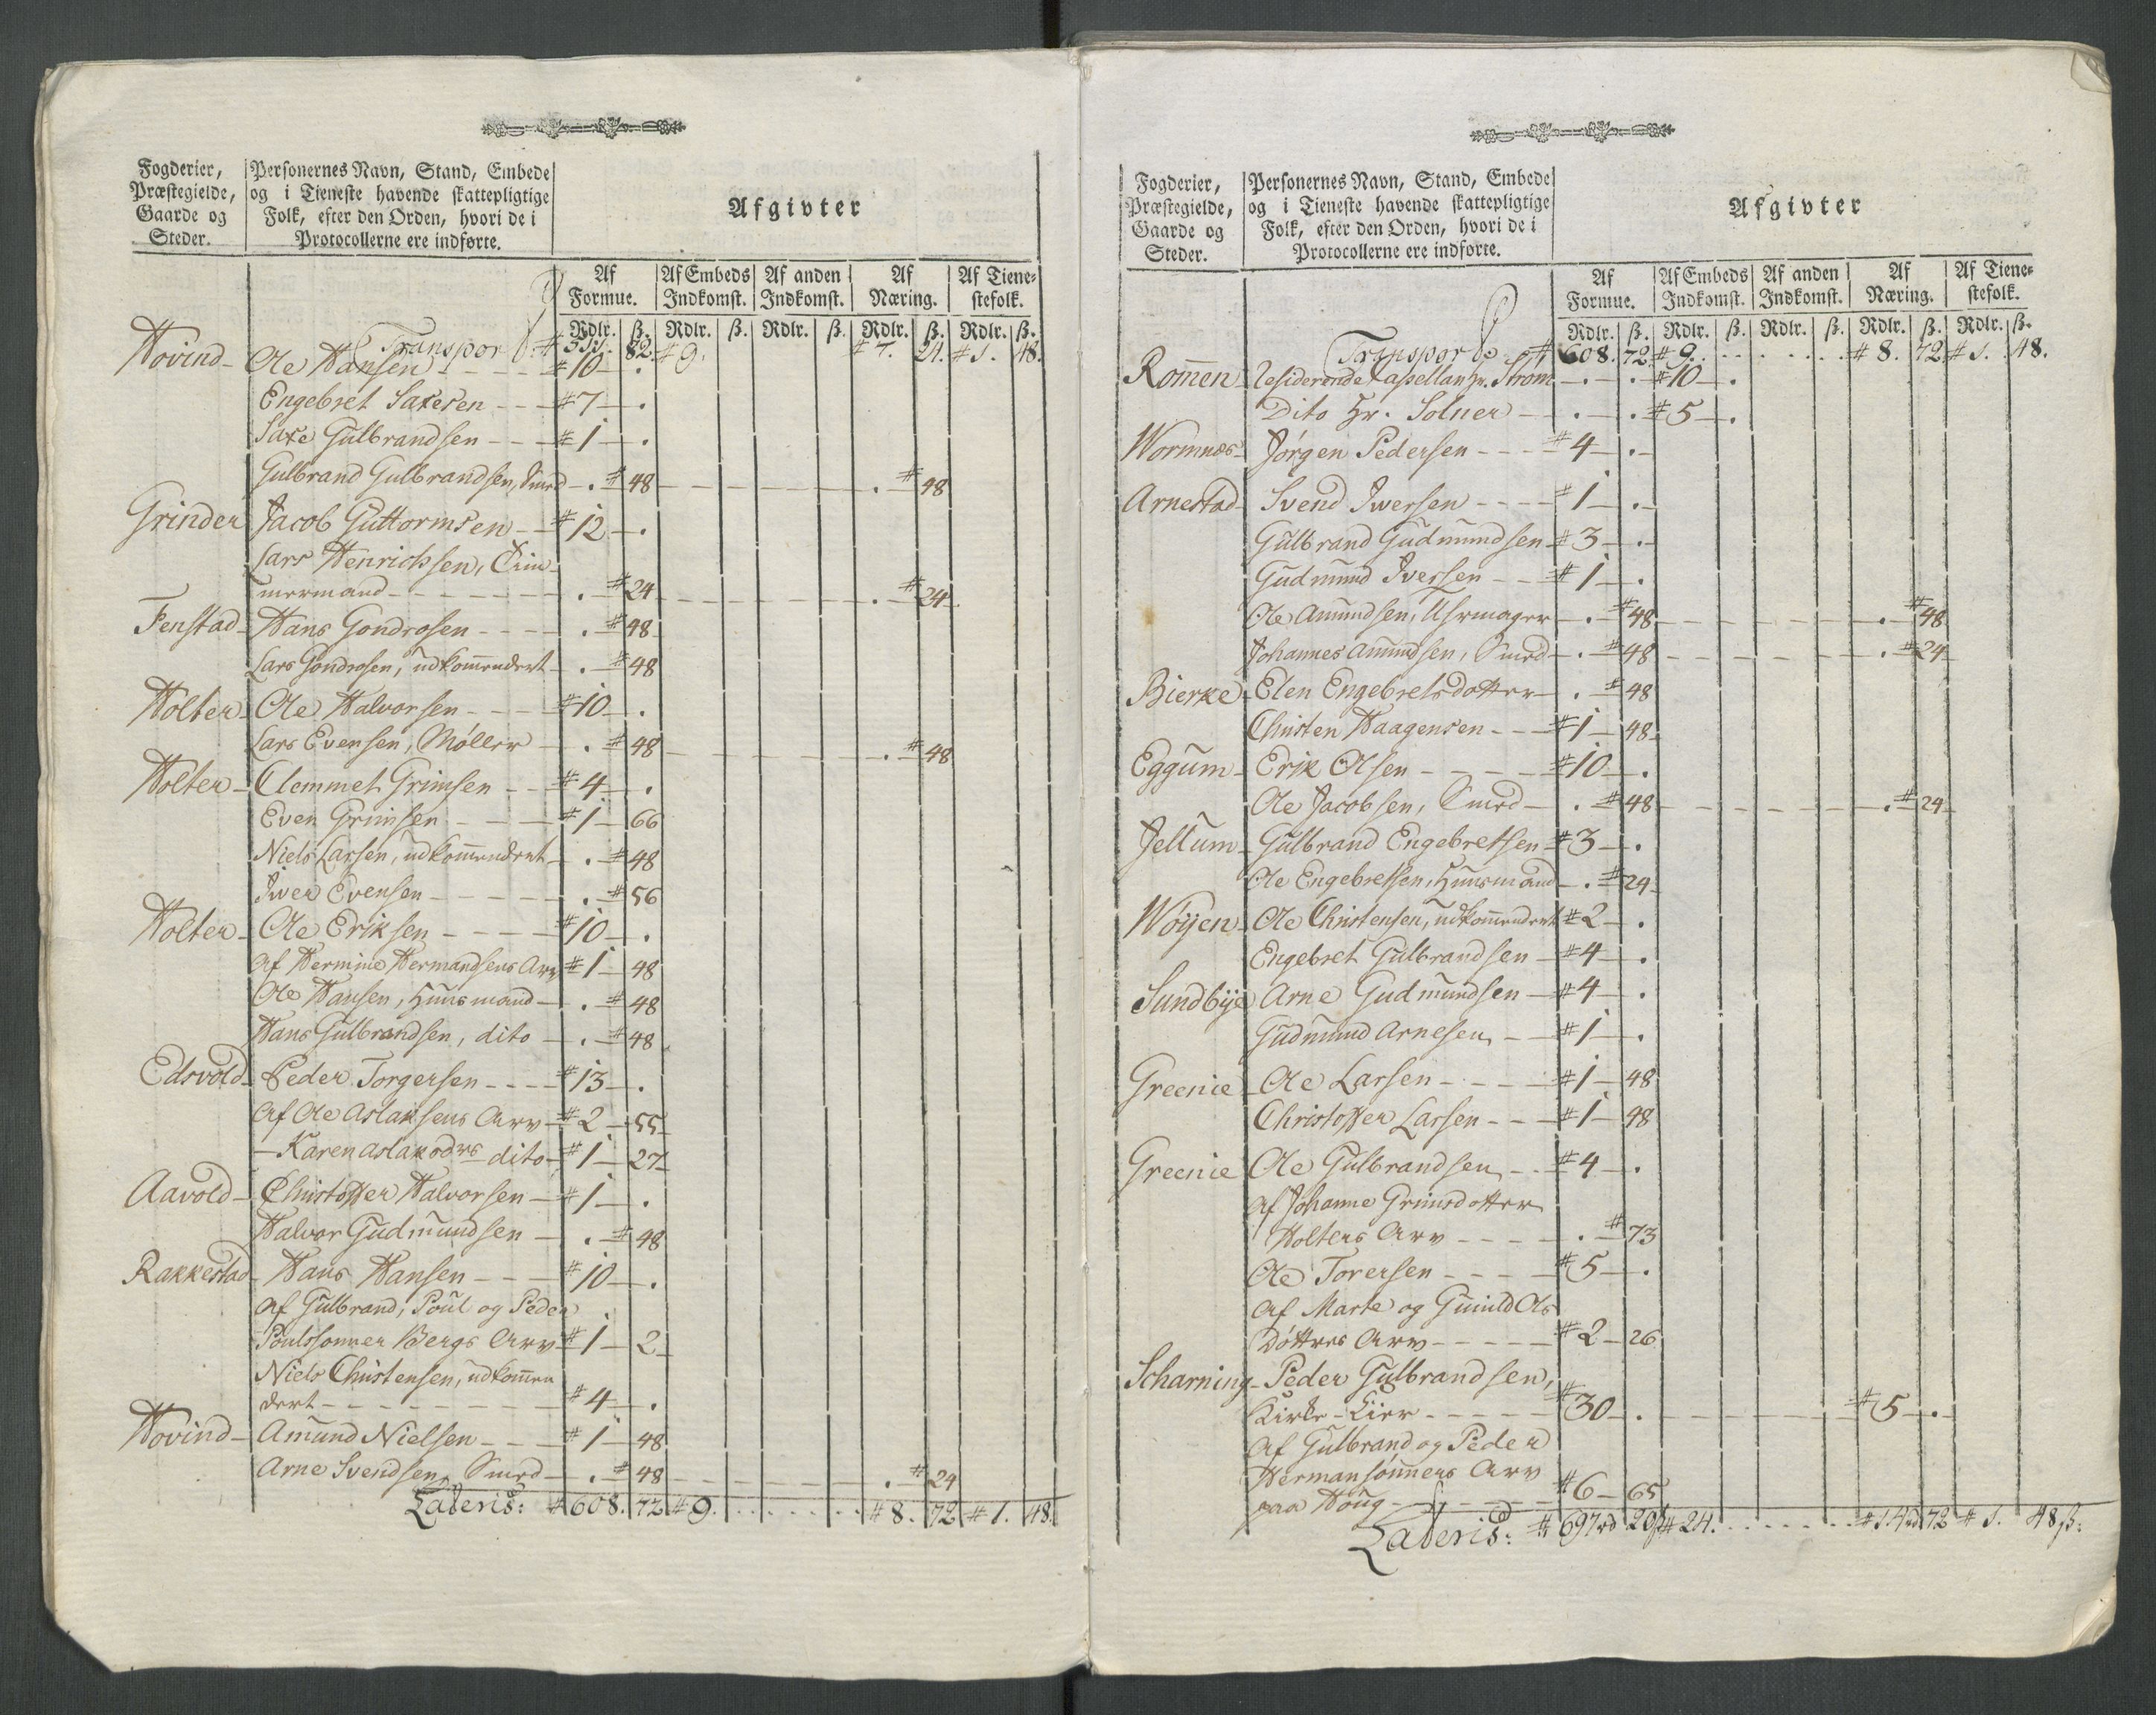 Fogderier,
Præstegielde,
Gaarde og
Steder.
Personernes Navn, Stand, Embede
og i Tieneste havende skattepligtige
Folk, efter den Orden, hvori de i
Protocollerne ere indførte.
Afgivter
Af Formue. Af Embeds Indkomst. Af anden Indkomst. Af Næring. Af Tienestefolk.
Rdlr. ß. Rdlr. ß. Rdlr. ß. Rdlr. ß. Rdlr. ß.
Transport 82. # 9. # 7. 21. # 1. 48.
Hovind - Ole Hansen - - - # 10 - .
Engebret Saxesen - - # 7 - .
Saxe Gulbrandsen - - - # 1 - .
Gulbrand Gulbrandsen, Smed - . # 48 - - - - - . # 48
Grinder Jacob Guttormsen - # 12 - .
Lars Henrichsen, Tim-
mermand - - - - - - . # 24 - - - - - . # 24
Fenstad - Hans Gondrosen - - - - . # 48
Lars Gondrosen, udkom̄endert - . # 48
Holter - Ole Halvorsen - - - # 10 - .
Lars Evensen, Møller - . # 48 - - - - - . # 48
Holter - Clemmet Grimsen - - # 4 - .
Even Grimsen - - - # 1 - 66
Niels Larsen, udkom̄endert - . # 48
Iwer Evensen - - - - - . # 56
Holter - Ole Eriksen - - - - # 10 - .
Af Hermine Hermandsens Arv # 1 - 48
Ole Hansen, Huusmand - . # 48
Hans Gulbrandsen, dito - . # 48
Edsvold - Peder Torgersen - - - # 13 - .
Af Ole Aslaksens Arv - # 2 - 55
- Karen Aslaksdrs dito - # 1 - 27
Aavold - Christoffer Halvorsen - # 1 - .
Halvor Gudmundsen - . # 48
Rakkestad - Hans Hansen - - - # 10 - .
Af Gulbrand, Poul og Peder
Poulssønner Bergs Arv # 1 - 2
Niels Christensen, udkom̄en
dert - - - - - - - # 4 - .
Hovind - Amund Nielsen - - - # 1 - 48
Arne Svendsen, Smed - . # 48 - - - - - . # 24
Lateris: # 608. 72 # 9. . . . . . # 8. 72 # 1. 48.
Fogderier,
Præstegielde,
Gaarde og
Steder.
Personernes Navn, Stand, Embede
og i Tieneste havende skattepligtige
Folk, efter den Orden, hvori de i
Protocollerne ere indførte.
Afgivter
Af Formue. Af Embeds Indkomst. Af anden Indkomst. Af Næring. Af Tienestefolk.
Rdlr. ß. Rdlr. ß. Rdlr. ß. Rdlr. ß. Rdlr. ß.
Transport # 608. 72 # 9. . . . . . # 8. 72 # 1. 48.
Rom̄en Residerende Capellan Hr. Strøm - . - . # 10 - .
Dito Hr. Solner - . - . # 5 - .
Wormnæs - Jørgen Pedersen - - - # 4 - .
Arnestad - Svend Iwersen - - - # 1 - .
Gulbrand Gudmundsen # 3 - .
Gudmund Iversen - - # 1 - .
Ole Amundsen, Uhrmager - . # 48 - - - - . # 48
Johannes Amundsen, Smed - . # 48 - - - - . # 24
Bierke - Elen Engebretsdotter - . # 48
Christen Haagensen - - # 1 - 48
Eggum - Erik Olsen - - - - # 10 - .
Ole Jacobsen, Smed - . # 48 - - - - - . # 24
Jellum - Gulbrand Engebretsen # 3 - .
Ole Engebretsen, Huusmand - . # 24
Wøyen - Ole Christensen, udkom̄endert # 2 - .
Engebret Gulbrandsen - # 4 - .
Sundbye Arne Gudmundsen - # 4 - .
Gudmund Arnesen - - # 1 - .
Greenie - Ole Larsen - - - - # 1 - 48
Christoffer Larsen - - # 1 - 48
Greenie Ole Gulbrandsen - - # 4 - .
Af Johanne Grimsdotter
Holters Arv - - - - . # 73
Ole Torersen - - - - # 5 - .
Af Marte og Gunild Ols
Døttres Arv - - - - # 2 - 26
Scharning - Peder Gulbrandsen,
Kirke-Eier - - - - - # 30 - . - - - - # 5 - .
Af Gulbrand og Peder
Hermansønners Arv
paa Houg - - - - - # 6 - 65
Lateris: # 697rd 20ß # 24. . . . . . # 14rd 72 # 1. 48ß: